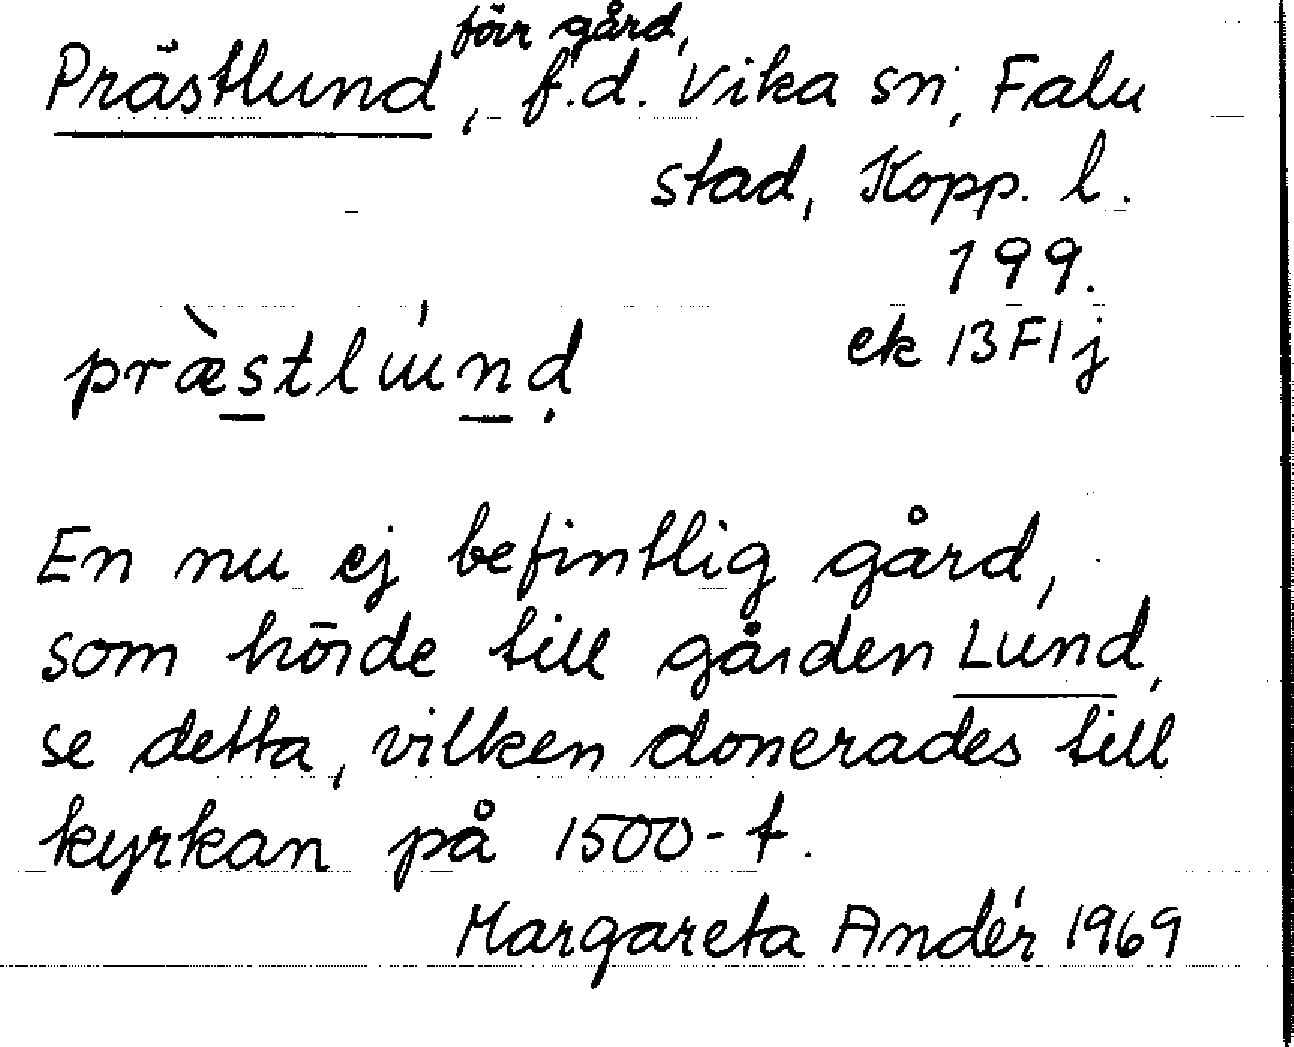 förr gård,
Prästlund, f.d. Vika sn, Falu
stad, Kopp. l.
199.
ek 13F1j
præ̀stluńd
En nu ej befintlig gård,
som hörde till gården Lund,
se detta, vilken donerades till
kyrkan på 1500-t.
Margareta Andér 1969